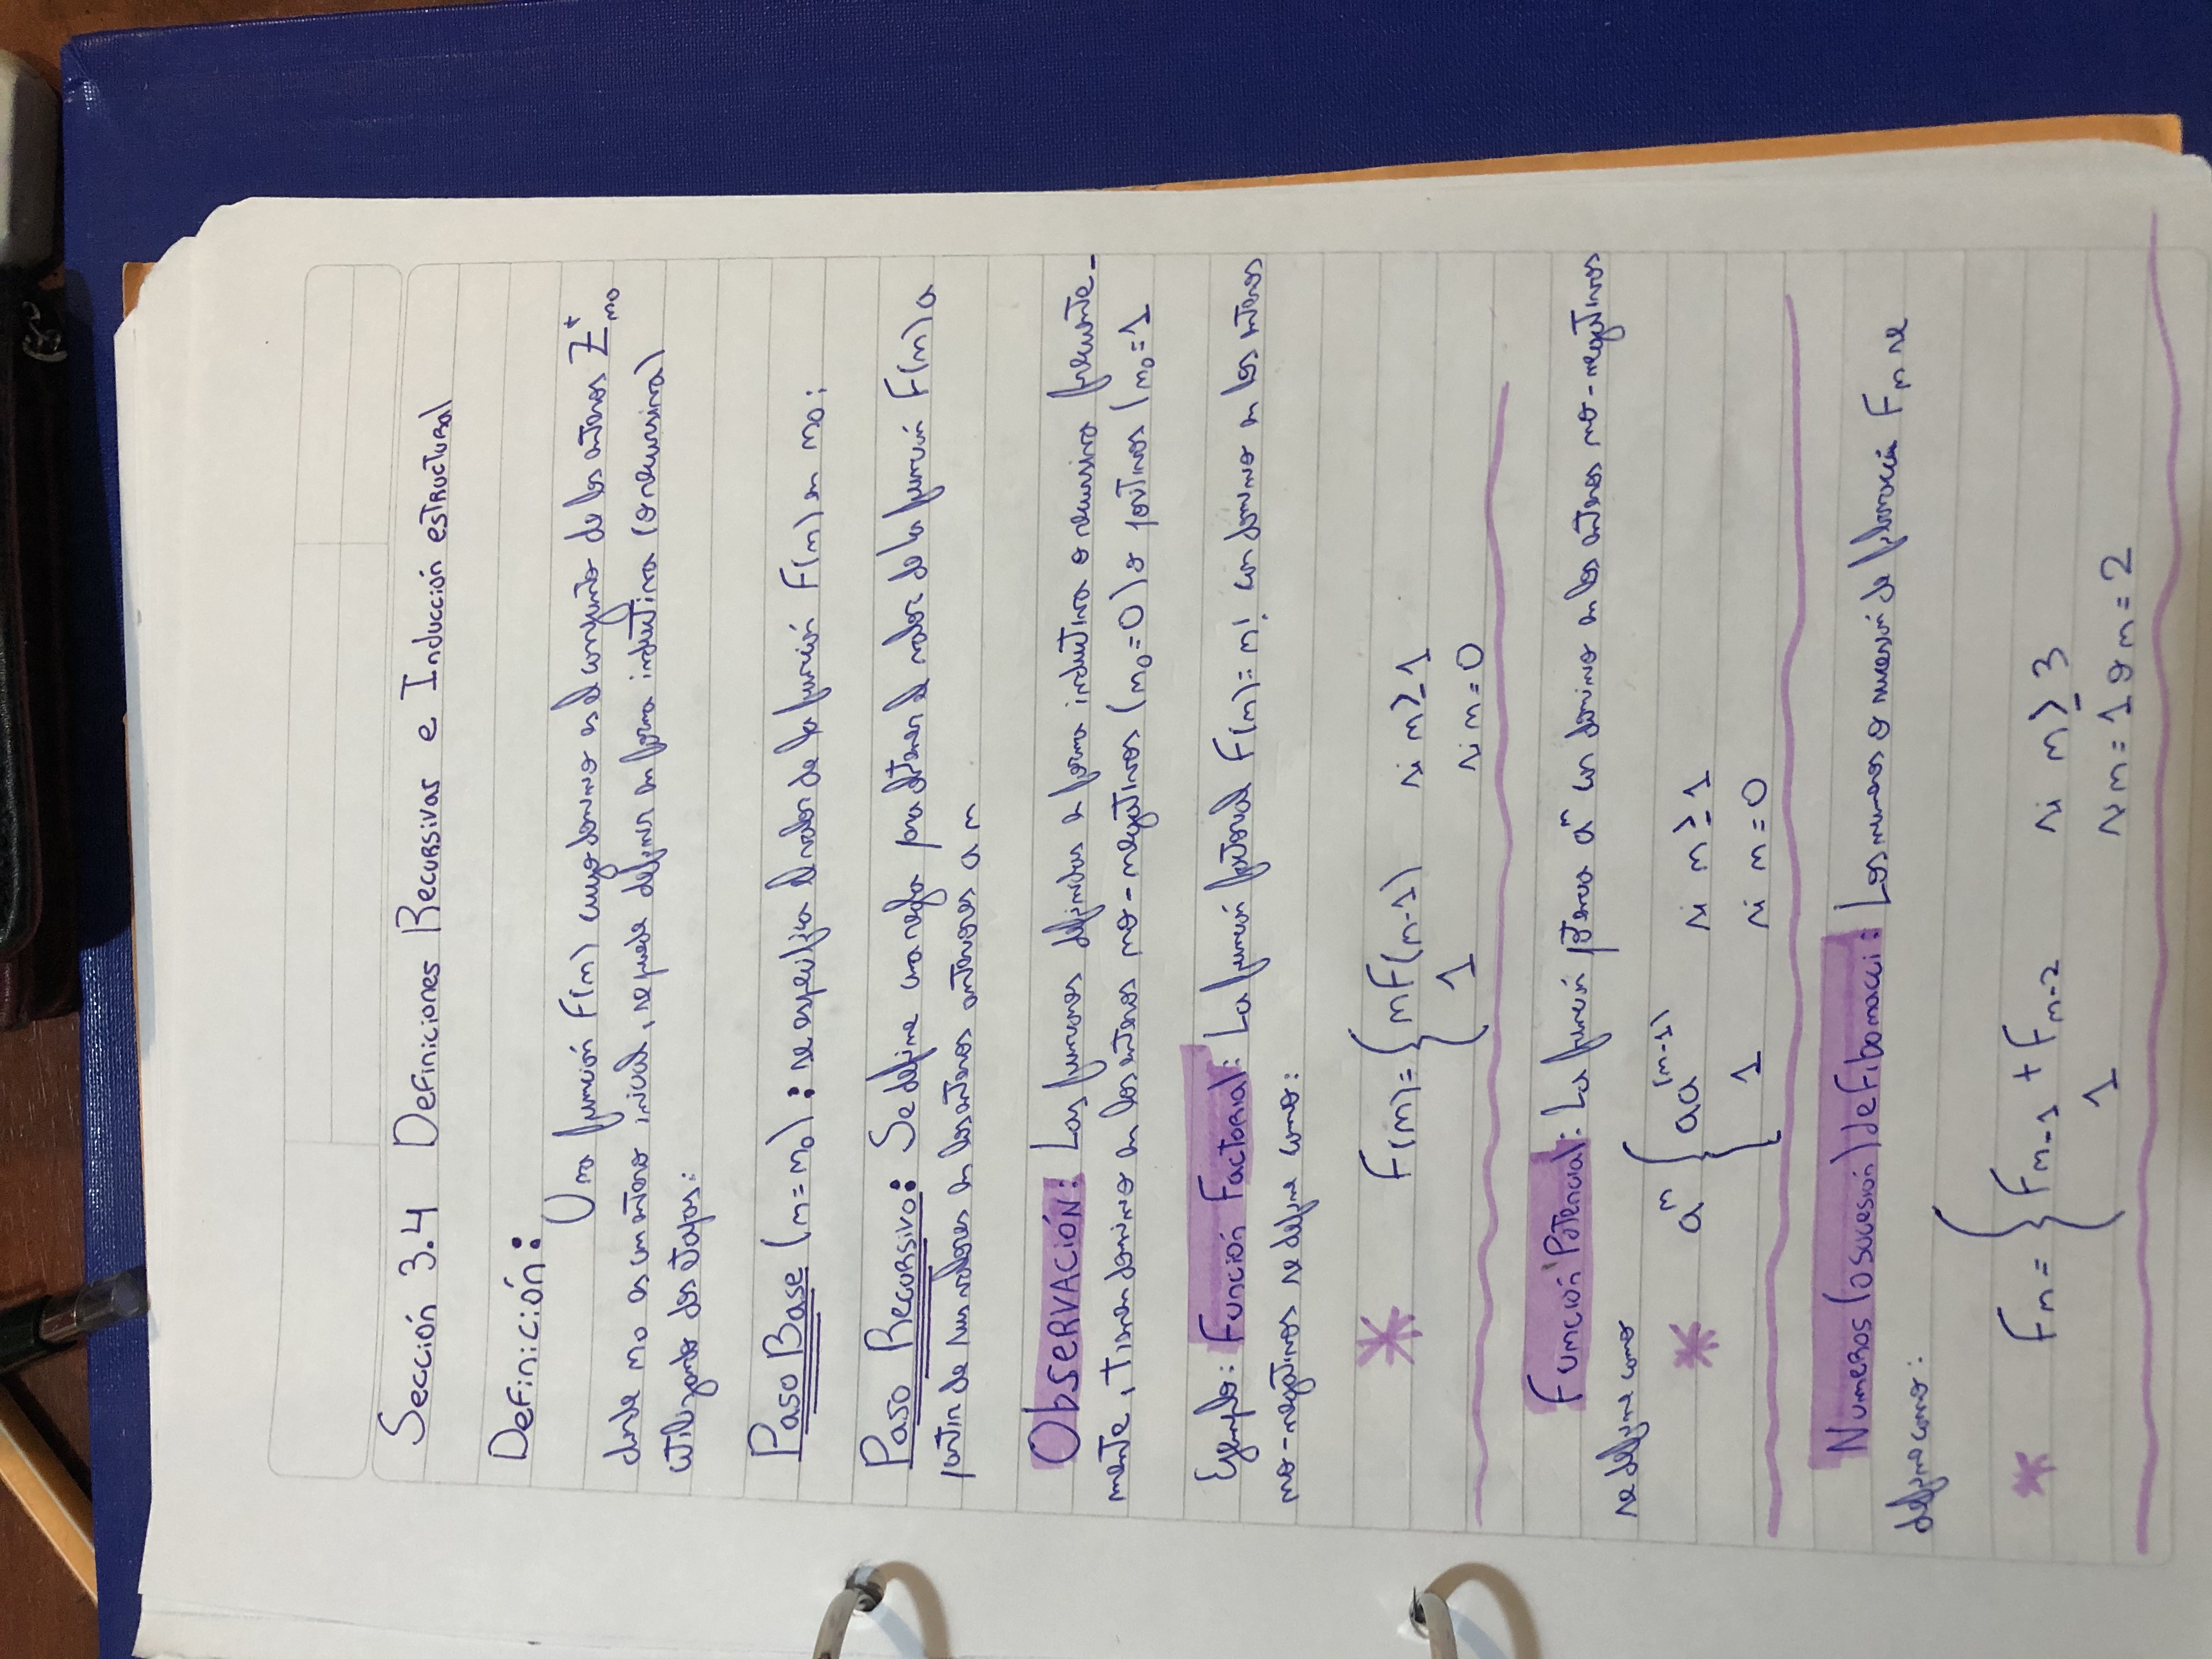 Sección 3.4 Definiciones Recursivas e Inducción estructural
Definición:
Una función F(n) cuyo dominio es el conjunto de los enteros Z⁺n₀
donde n₀ es un entero inicial, se puede definir en forma inductiva (o recursiva)
utilizando dos etapas:
Paso Base (n=n₀): se especifica el valor de la función F(n) en n₀;
Paso Recursivo: Se define una regla para obtener el valor de la función F(n) a
partir de sus valores en los enteros anteriores a n
Observación: Las funciones definidas en forma inductiva o recursiva frecuente-
mente, tienen dominio en los enteros no-negativos (n₀=0) o positivos (n₀=1
Ejemplo: Función Factorial: La función factorial F(n)=n! con dominio en los enteros
no-negativos se define como:
* F(n)= { nF(n-1) si n≥1
1 si n=0
Función Potencial: La función potencia aⁿ con dominio en los enteros no-negativos
se define como
* aⁿ { aa⁽ⁿ⁻¹⁾ si n≥1
1 si n=0
Numeros (o sucesión) de Fibonacci: Los numeros o sucesión de fibonacci Fn se
define como:
* Fn= { Fn-1 + Fn-2 si n≥3
1 si n=1 o n=2